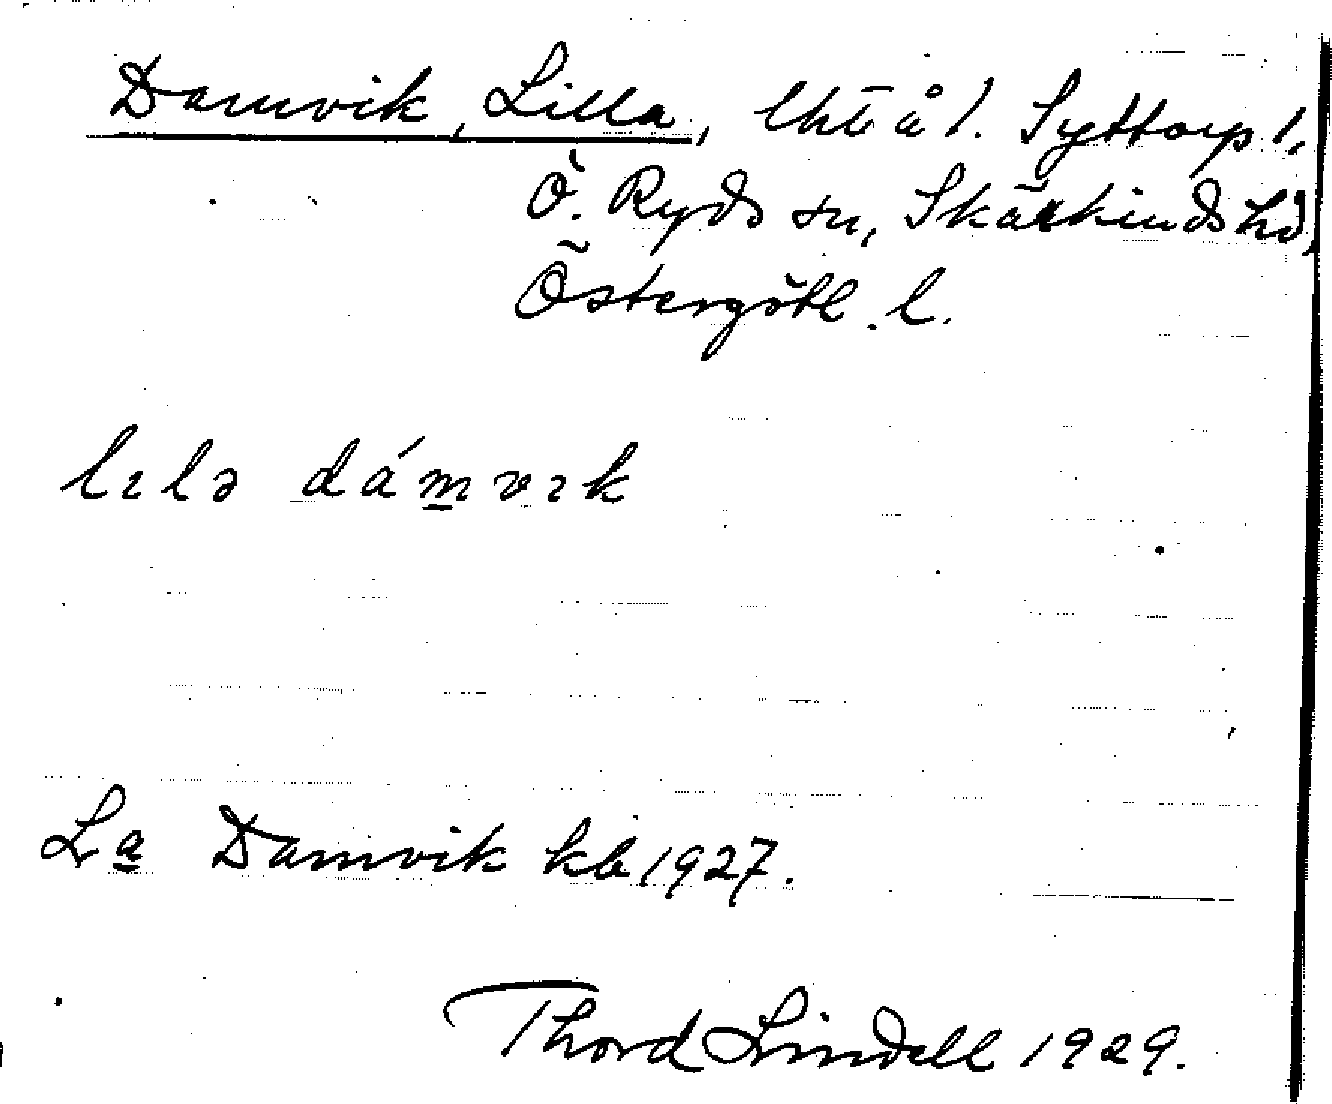 Damvik, Lilla, lht å 1. Syttorp 1,
Ö. Ryds sn, Skärkinds hd,
Östergötl. l.
lılə dámvık
La Damvik kb 1927.
Thord Lindell 1929.